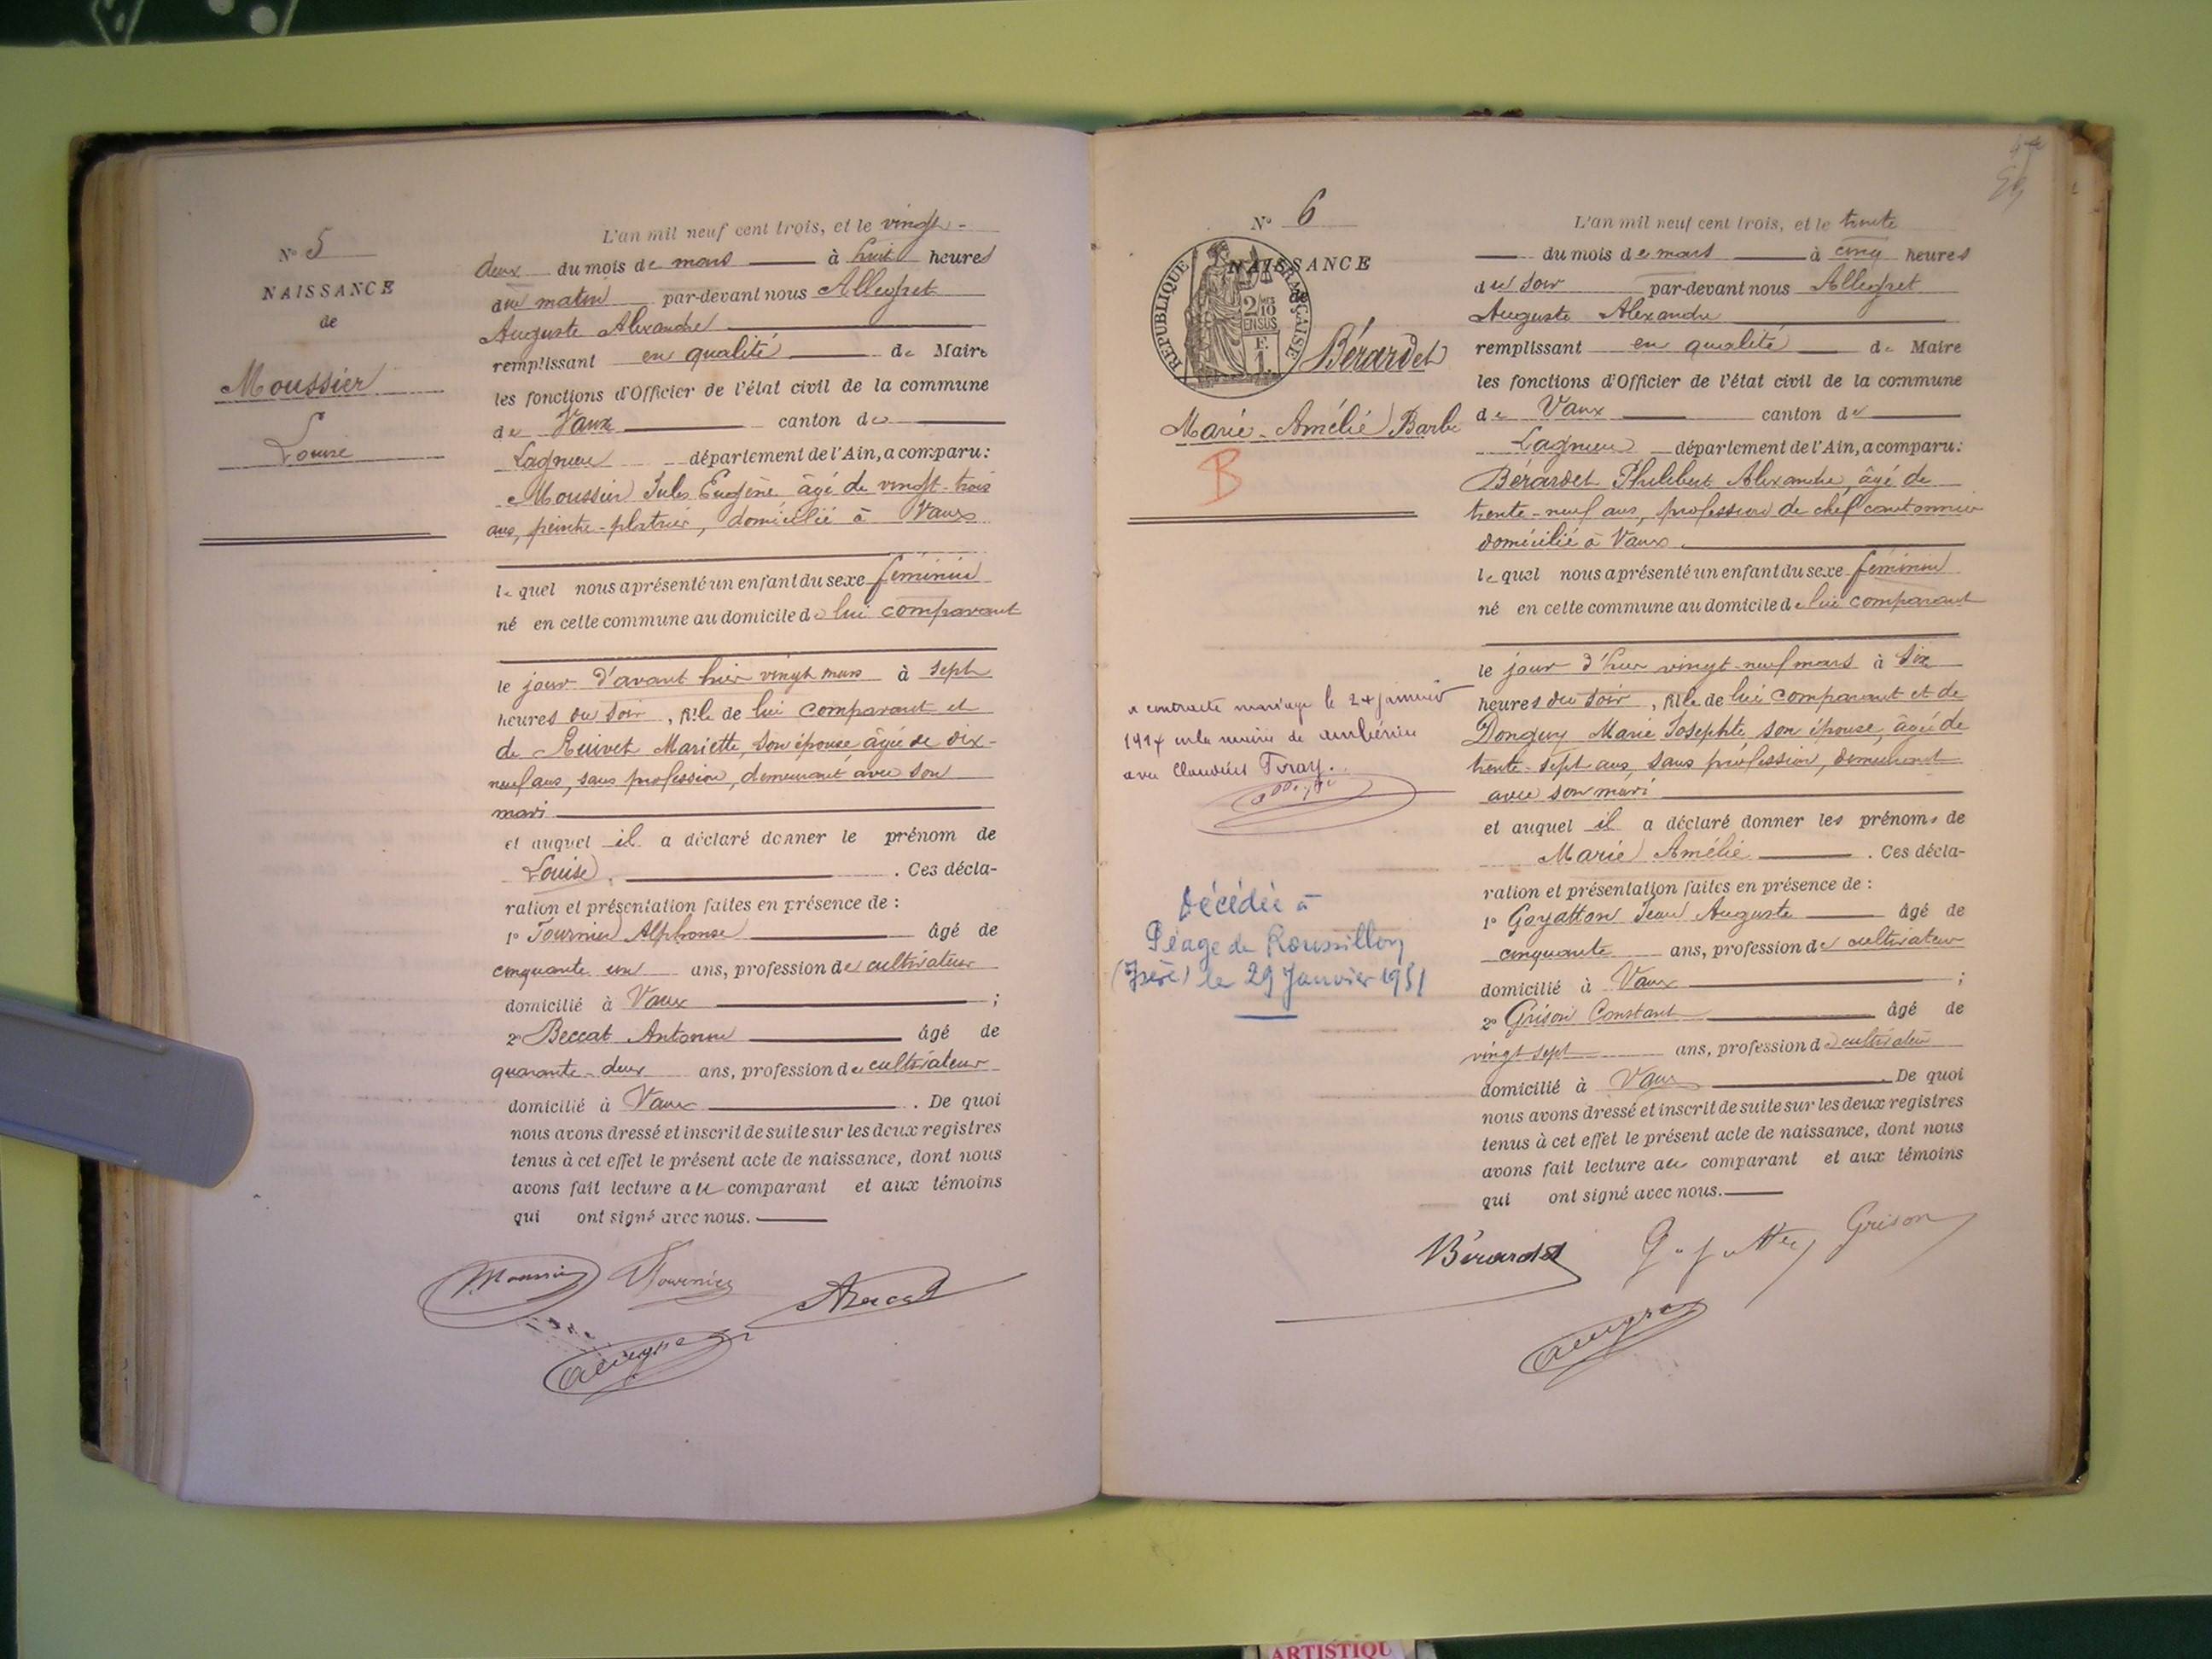 N° 5
NAISSANCE
de
Moussier
Louise
L'an mil neuf cent trois, et le vingt-
deux du mois de mars à huit heures
du matin par-devant nous Allegret
Auguste Alexandre
remplissant en qualité de Maire
les fonctions d'Officier de l'état civil de la commune
de Vaux canton de
Lagnieu département de l'Ain, a comparu :
Moussier Jules Eugène âgé de vingt-trois
ans, peintre-plâtrier, domicilié à Vaux
lequel nous a présenté un enfant du sexe féminin
né en cette commune au domicile de lui comparant
le jour d'avant hier vingt mars à sept
heures du soir, fille de lui comparant et
de Ruivet Mariette, son épouse âgée de dix-
neuf ans, sans profession, demeurant avec son
mari
et auquel il a déclaré donner le prénom de
Louise. Ces décla-
ration et présentation faites en présence de :
1° Fournier Alphonse âgé de
cinquante un ans, profession de cultivateur
domicilié à Vaux ;
2° Beccat Antonin âgé de
quarante-deux ans, profession de cultivateur
domicilié à Vaux. De quoi
nous avons dressé et inscrit de suite sur les deux registres
tenus à cet effet le présent acte de naissance, dont nous
avons fait lecture au comparant et aux témoins
qui ont signé avec nous.
Moussier Fournier
N° 6
NAISSANCE
de
RÉPUBLIQUE FRANÇAISE
2/10 EN SUS
1 F.
Bérardet
Marie-Amélie Barbe
B
a contracté mariage le 24 janvier
en la mairie de Ambérieu
avec Claudius
Décédée à
Péage de Roussillon
(Isère) le 29 Janvier 1951
L'an mil neuf cent trois, et le trente
du mois de mars à cinq heures
du soir par-devant nous Allegret
Auguste Alexandre
remplissant en qualité de Maire
les fonctions d'Officier de l'état civil de la commune
de Vaux canton de
Lagnieu département de l'Ain, a comparu :
Bérardet Philibert Alexandre, âgé de
trente-neuf ans, profession de chef cantonnier
domicilié à Vaux.
lequel nous a présenté un enfant du sexe féminin
né en cette commune au domicile de lui comparant
le jour d'hier vingt-neuf mars à six
heures du soir, fille de lui comparant et de
Donguy Marie Josephte son épouse, âgée de
trente-sept ans, sans profession, demeurant
avec son mari
et auquel il a déclaré donner les prénoms de
Marie Amélie. Ces décla-
ration et présentation faites en présence de :
1° Goyatton Jean Auguste âgé de
cinquante ans, profession de cultivateur
domicilié à Vaux ;
2° Grison Constant âgé de
vingt sept ans, profession de cultivateur
domicilié à Vaux. De quoi
nous avons dressé et inscrit de suite sur les deux registres
tenus à cet effet le présent acte de naissance, dont nous
avons fait lecture au comparant et aux témoins
qui ont signé avec nous.
Bérardet Grison
ARTISTIQU